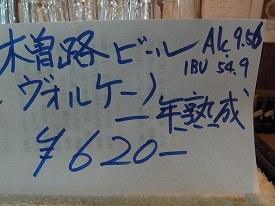 木曽路ビール Alc 9.56
IBU 54.9
ヴォルケーノ
一年熟成
¥620-